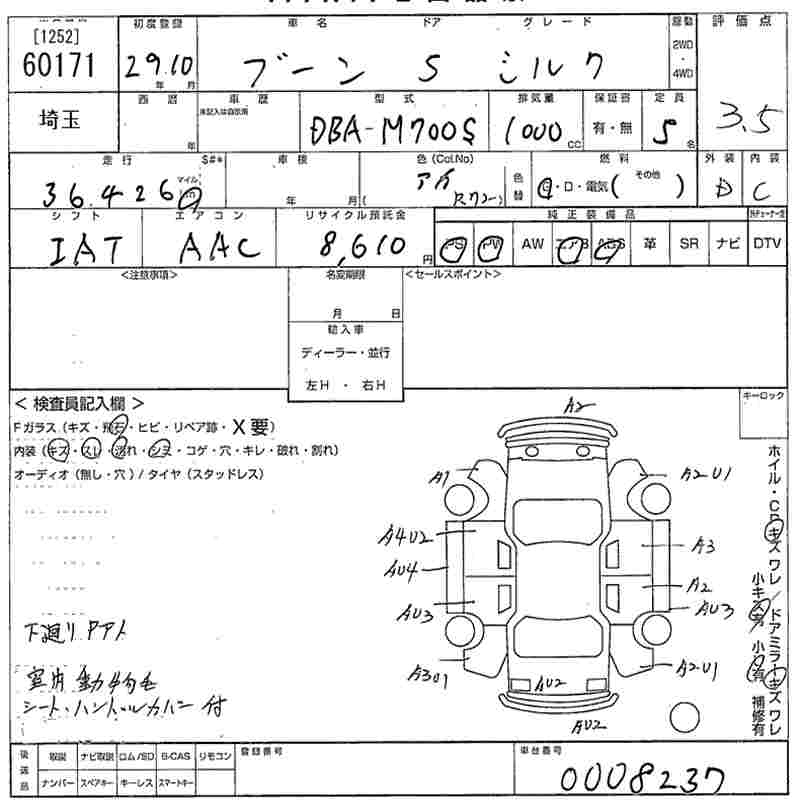 [1252]
60171
初度登録
29.10
年 月
車名 ドア グレード
ブーン 5 シルク
駆動
2WD
・
4WD
評価点
3.5
埼玉
西暦
年
車歴
未記入は自家用
型式
DBA-M700S
排気量
1000 CC
保証書
有・無
定員
5 名
走行 S#*
36,426
マイル
km
車検
年 月(
色(Col.No)
アカ
R72
色替
燃料
G・D・電気( その他 )
外装
D
内装
C
シフト
IAT
エアコン
AAC
リサイクル預託金
8,610 円
純正装備品
PS PW AW エアB ABS 革 SR ナビ
DTV
<注意事項>
名変期限
月 日
輸入車
ディーラー・並行
左H ・ 右H
<セールスポイント>
< 検査員記入欄 >
Fガラス(キズ・飛石・ヒビ・リペア跡・X要)
内装(キズ・スレ・汚れ・シミ・コゲ・穴・キレ・破れ・割れ)
オーディオ(無し・穴)/タイヤ(スタッドレス)
キーロック
A2
A1
A2U1
A4U2
A3
AU4
A2
AU3
AU3
A3U1
A2U1
AU2
AU2
ホイル・CPキズワレ/ドアミラーキズワレ
小キズ有 小凹有 補修有
下廻りサビ
室内動物毛
シート・ハンドルカバー付
後送品
取説 ナビ取説 ロム/SD B-CAS リモコン
ナンバー スペアキー キーレス スマートキー
登録番号
車台番号
0008237